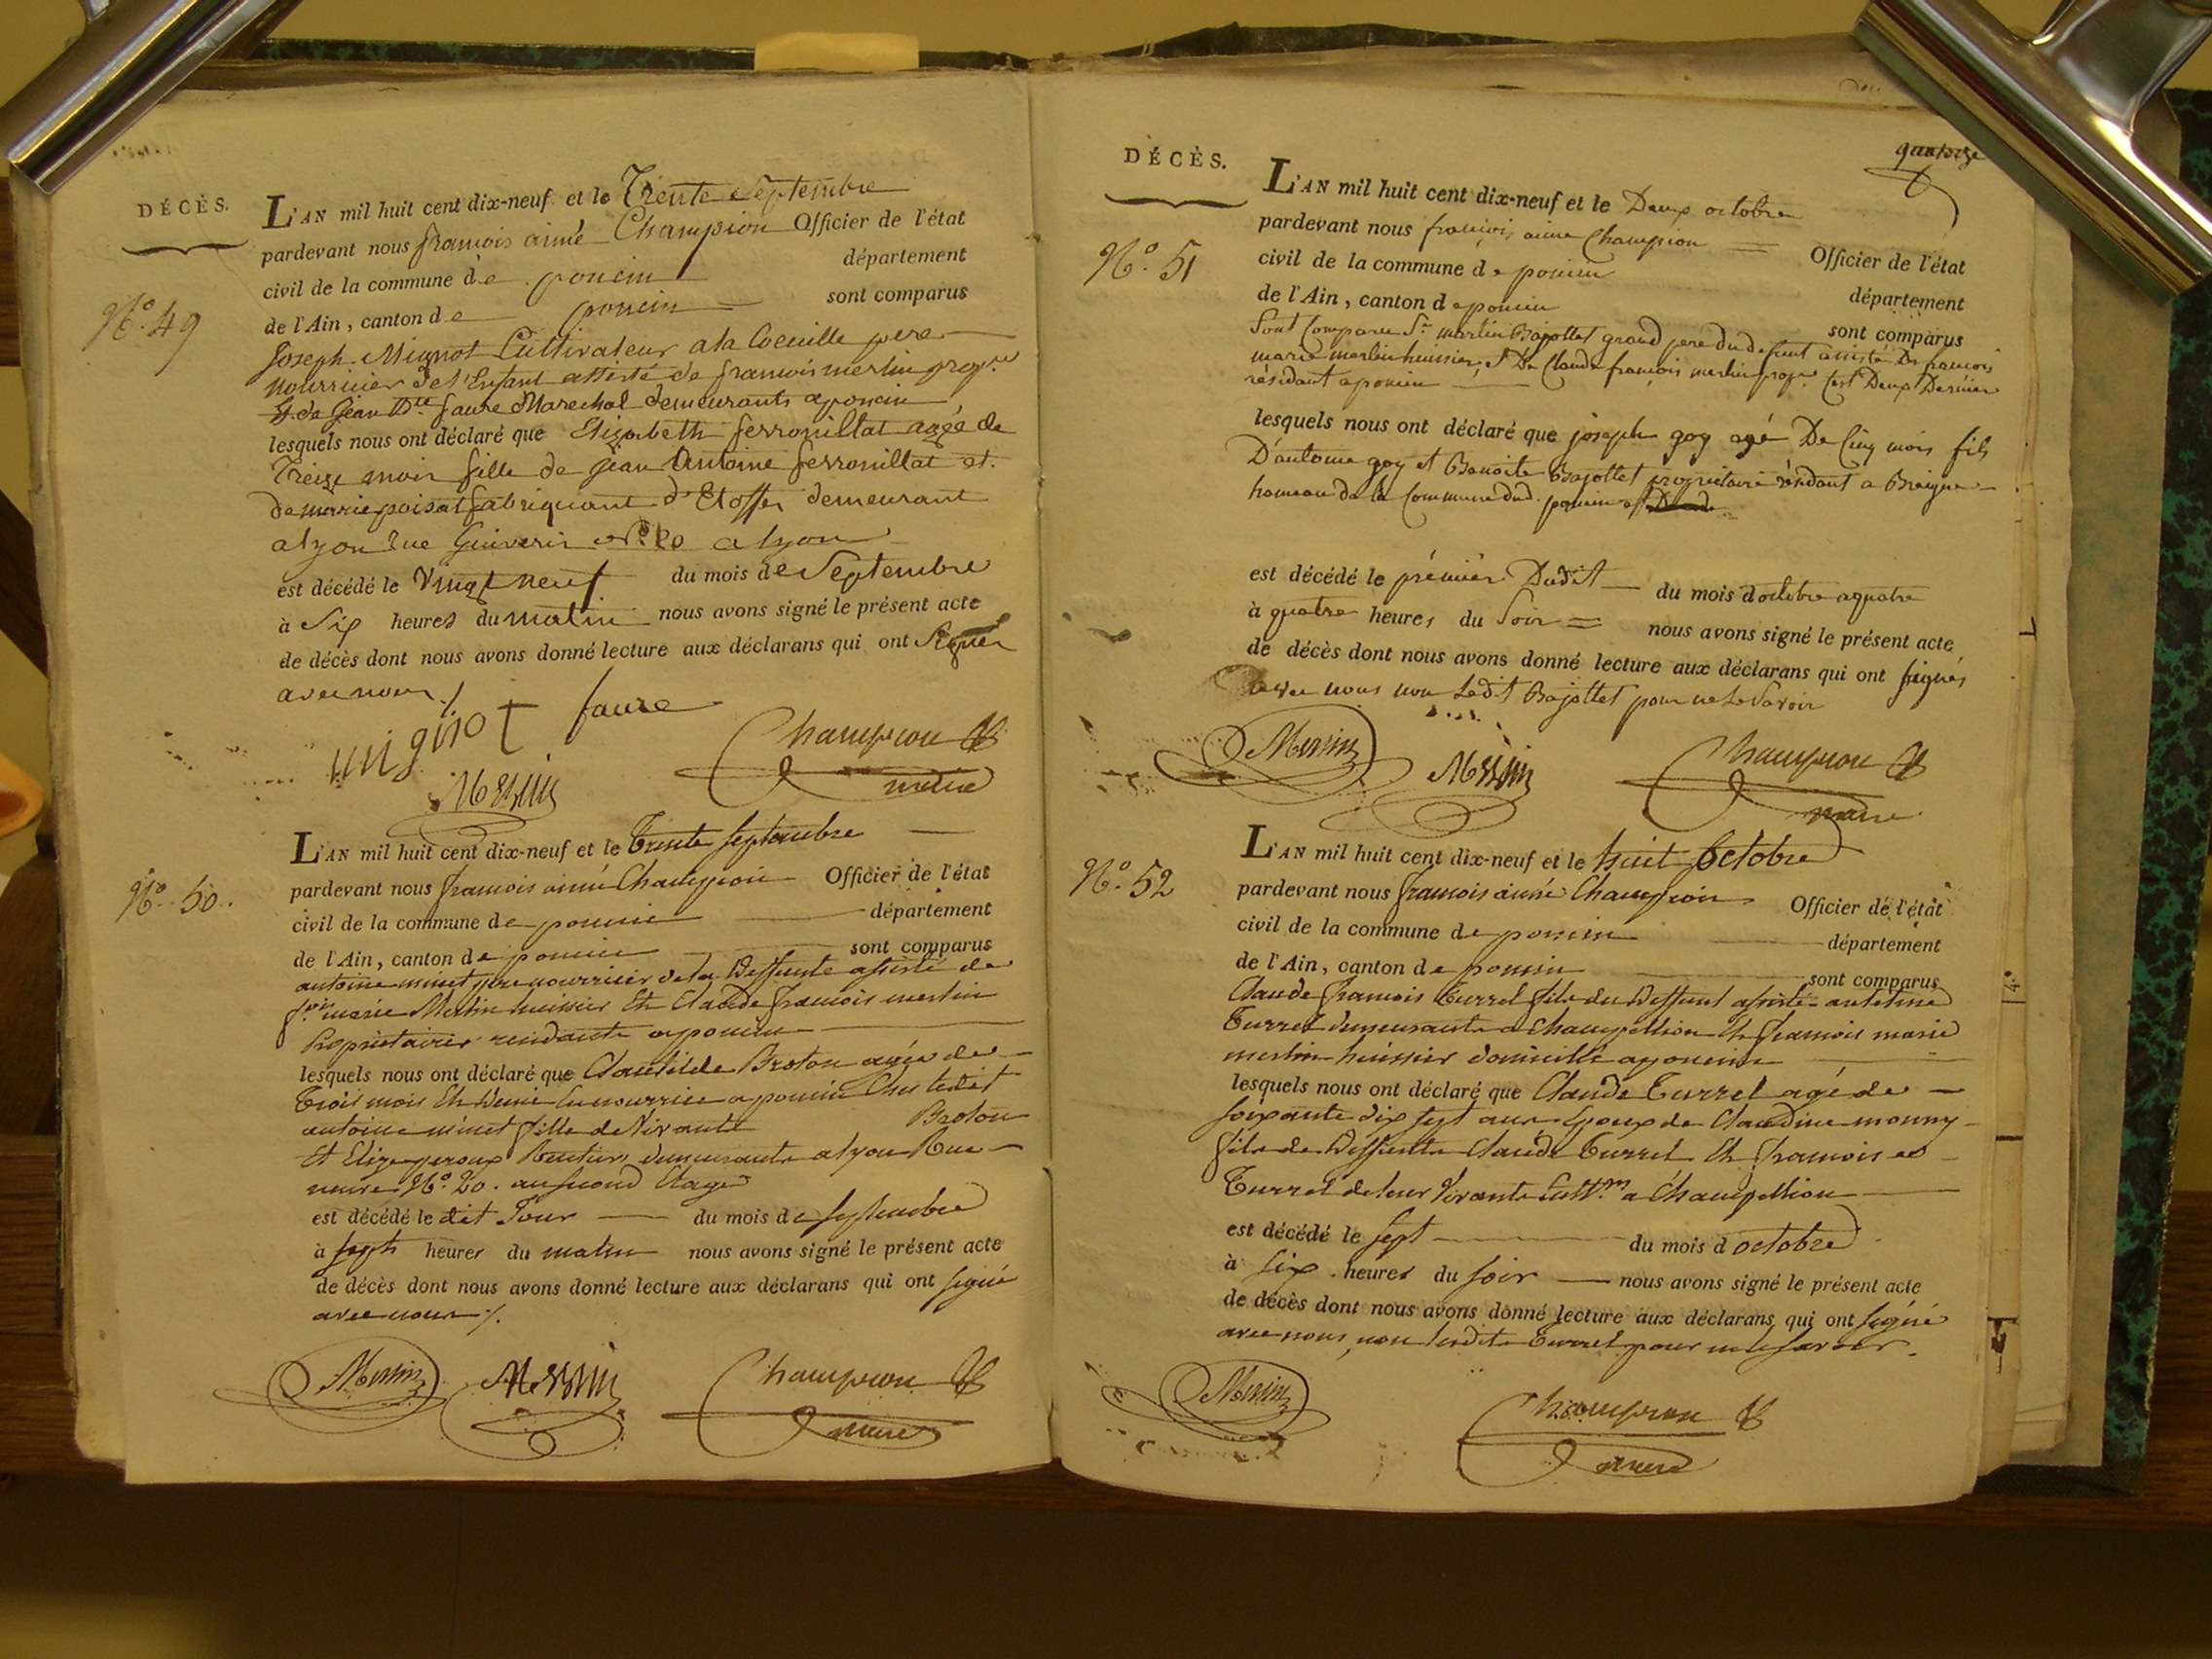 DÉCÈS.
L'AN mil huit cent dix-neuf et le Trente Septembre
pardevant nous françois aimé Champion Officier de l'état
civil de la commune de poncin département
de l'Ain, canton de poncin sont comparus
N.° 49
Joseph Mignot Cultivateur a la pere
nourricier de l'Enfant assisté de francois merlin prop.re
et de Jean B.te faure Marechal demeurants a poncin
lesquels nous ont déclaré que Elizabeth ferrouillat agée de
Treize mois fille de Jean Antoine ferrouillat et
de marie poisat fabriquant d'Etoffes demeurant
a lyon Rue N.° 20 a lyon
est décédé le Vingt neuf du mois de Septembre
à Six heures du matin nous avons signé le présent acte
de décès dont nous avons donné lecture aux déclarans qui ont Signer
avec nous ./.
mignot faure
Merlin
Champion
maire
L'AN mil huit cent dix-neuf et le Trente Septembre
N.° 50.
pardevant nous francois aimé Champion Officier de l'état
civil de la commune de poncin département
de l'Ain, canton de poncin sont comparus
antoine minet pere nourricier de la Deffunte assisté de
f.ois marie Merlin huissier Et Claude francois merlin
Proprietaires residants a poncin
lesquels nous ont déclaré que Clautilde Broton agée de
Trois mois Et Demi En nourrice a poncin Chez ledit
antoine minet fille de Vivants Broton
Et Elize peroux Rentiers demeurants a lyon Rue
N.° 20. au second Etage
est décédé le dit Jour du mois de Septembre
à sept heures du matin nous avons signé le présent acte
de décès dont nous avons donné lecture aux déclarans qui ont signé
avec nous ./.
Merlin Merlin Champion
maire
quatorze
DÉCÈS.
L'AN mil huit cent dix-neuf et le Deux octobre
pardevant nous françois aimé Champion Officier de l'état
N.° 51
civil de la commune de poncin département
de l'Ain, canton de poncin sont comparus
Sont Comparu S.r martin Bajollet grand pere du defunt assisté De francois
marie merlin huissier, et De Claude françois merlin prop.re Cest Deux Dernier
résidant a poncin
lesquels nous ont déclaré que joseph goy agé De Cinq mois fils
D'antoine goy et Benoite Bajollet propriétaire résidant a Breigne
hameau de la Commune dud. poncin
est décédé le prémier Dudit du mois d'octobre a quatre
à quatre heures du Soir nous avons signé le présent acte
de décès dont nous avons donné lecture aux déclarans qui ont signés
avec nous non Ledit Bajollet pour ne Le Savoir
Merlin Merlin Champion
maire
L'AN mil huit cent dix-neuf et le huit Octobre
N.° 52
pardevant nous francois aimé Champion Officier de l'état
civil de la commune de poncin département
de l'Ain, canton de poncin sont comparus
Claude francois Turrel fils du Deffunt assisté antelme
Turrel demeurants a Champellion Et francois marie
merlin huissier domicillié a poncin
lesquels nous ont déclaré que Claude Turrel agé de
soixante dix sept ans Epoux de Claudine
fils de Deffunts Claude Turrel Et francoise
Turrel de leur Vivants Cult.rs a Champellion
est décédé le sept du mois d octobre
à six heures du soir nous avons signé le présent acte
de décès dont nous avons donné lecture aux déclarans qui ont signé
avec nous, non lesdits Turrel pour ne le savoir.
Merlin
Champion
maire